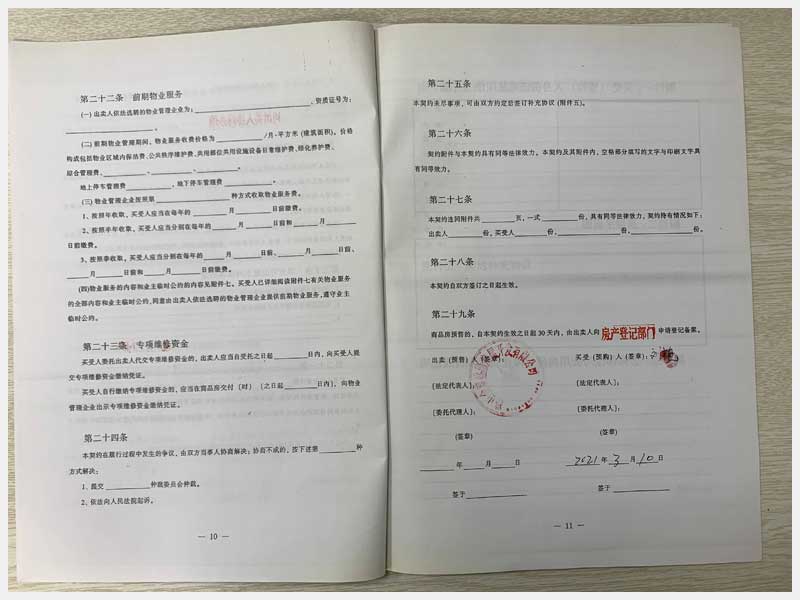 第二十二条 前期物业服务
(一) 出卖人依法选聘的物业管理企业为：____________，资质证号为：
____________。
(二) 前期物业管理期间，物业服务收费价格为________/月·平方米（建筑面积）。价格
构成包括物业区域内保洁费、公共秩序维护费、共用部位共用设施设备日常维护费、绿化养护费、
综合管理费、________、________、________。
地上停车管理费________，地下停车管理费________。
(三) 物业管理企业按照第____________种方式收取物业服务费。
1、按照年收取，买受人应当在每年的______月______日前缴费。
2、按照半年收取，买受人应当分别在每年的______月______日前和______月______
日前缴费。
3、按照季收取，买受人应当分别在每年的______月______日前、______月______日前、
______月______日前和______月______日前缴费。
(四)物业服务的内容和业主临时公约的内容见附件七。买受人已详细阅读附件七有关物业服务
的全部内容和业主临时公约，同意由出卖人依法选聘的物业管理企业提供前期物业服务，遵守业主
临时公约。
第二十三条 专项维修资金
买受人委托出卖人代交专项维修资金的，出卖人应当自受托之日起________日内，向买受人提
交专项维修资金缴纳凭证。
买受人自行缴纳专项维修资金的，应当在商品房交付〔时〕〔之日起________日内〕，向物业
管理企业出示专项维修资金缴纳凭证。
第二十四条
本契约在履行过程中发生的争议，由双方当事人协商解决；协商不成的，按下述第________种
方式解决：
1、提交__________仲裁委员会仲裁。
2、依法向人民法院起诉。
— 10 —
第二十五条
本契约未尽事项，可由双方约定后签订补充协议（附件五）。
第二十六条
契约附件与本契约具有同等法律效力。本契约及其附件内，空格部分填写的文字与印刷文字具
有同等效力。
第二十七条
本契约连同附件共________页，一式________份，具有同等法律效力，契约持有情况如下：
出卖人________份，买受人________份，________份，________份。
第二十八条
本契约自双方签订之日起生效。
第二十九条
商品房预售的，自本契约生效之日起30天内，由出卖人向房产登记部门申请登记备案。
出卖（预售）人（签章）： 买受（预购）人（签章）：
[法定代表人]： [法定代表人]：
[委托代理人]： [委托代理人]：
（签章） （签章）
______年____月____日 2021年3月10日
签于________ 签于________
— 11 —